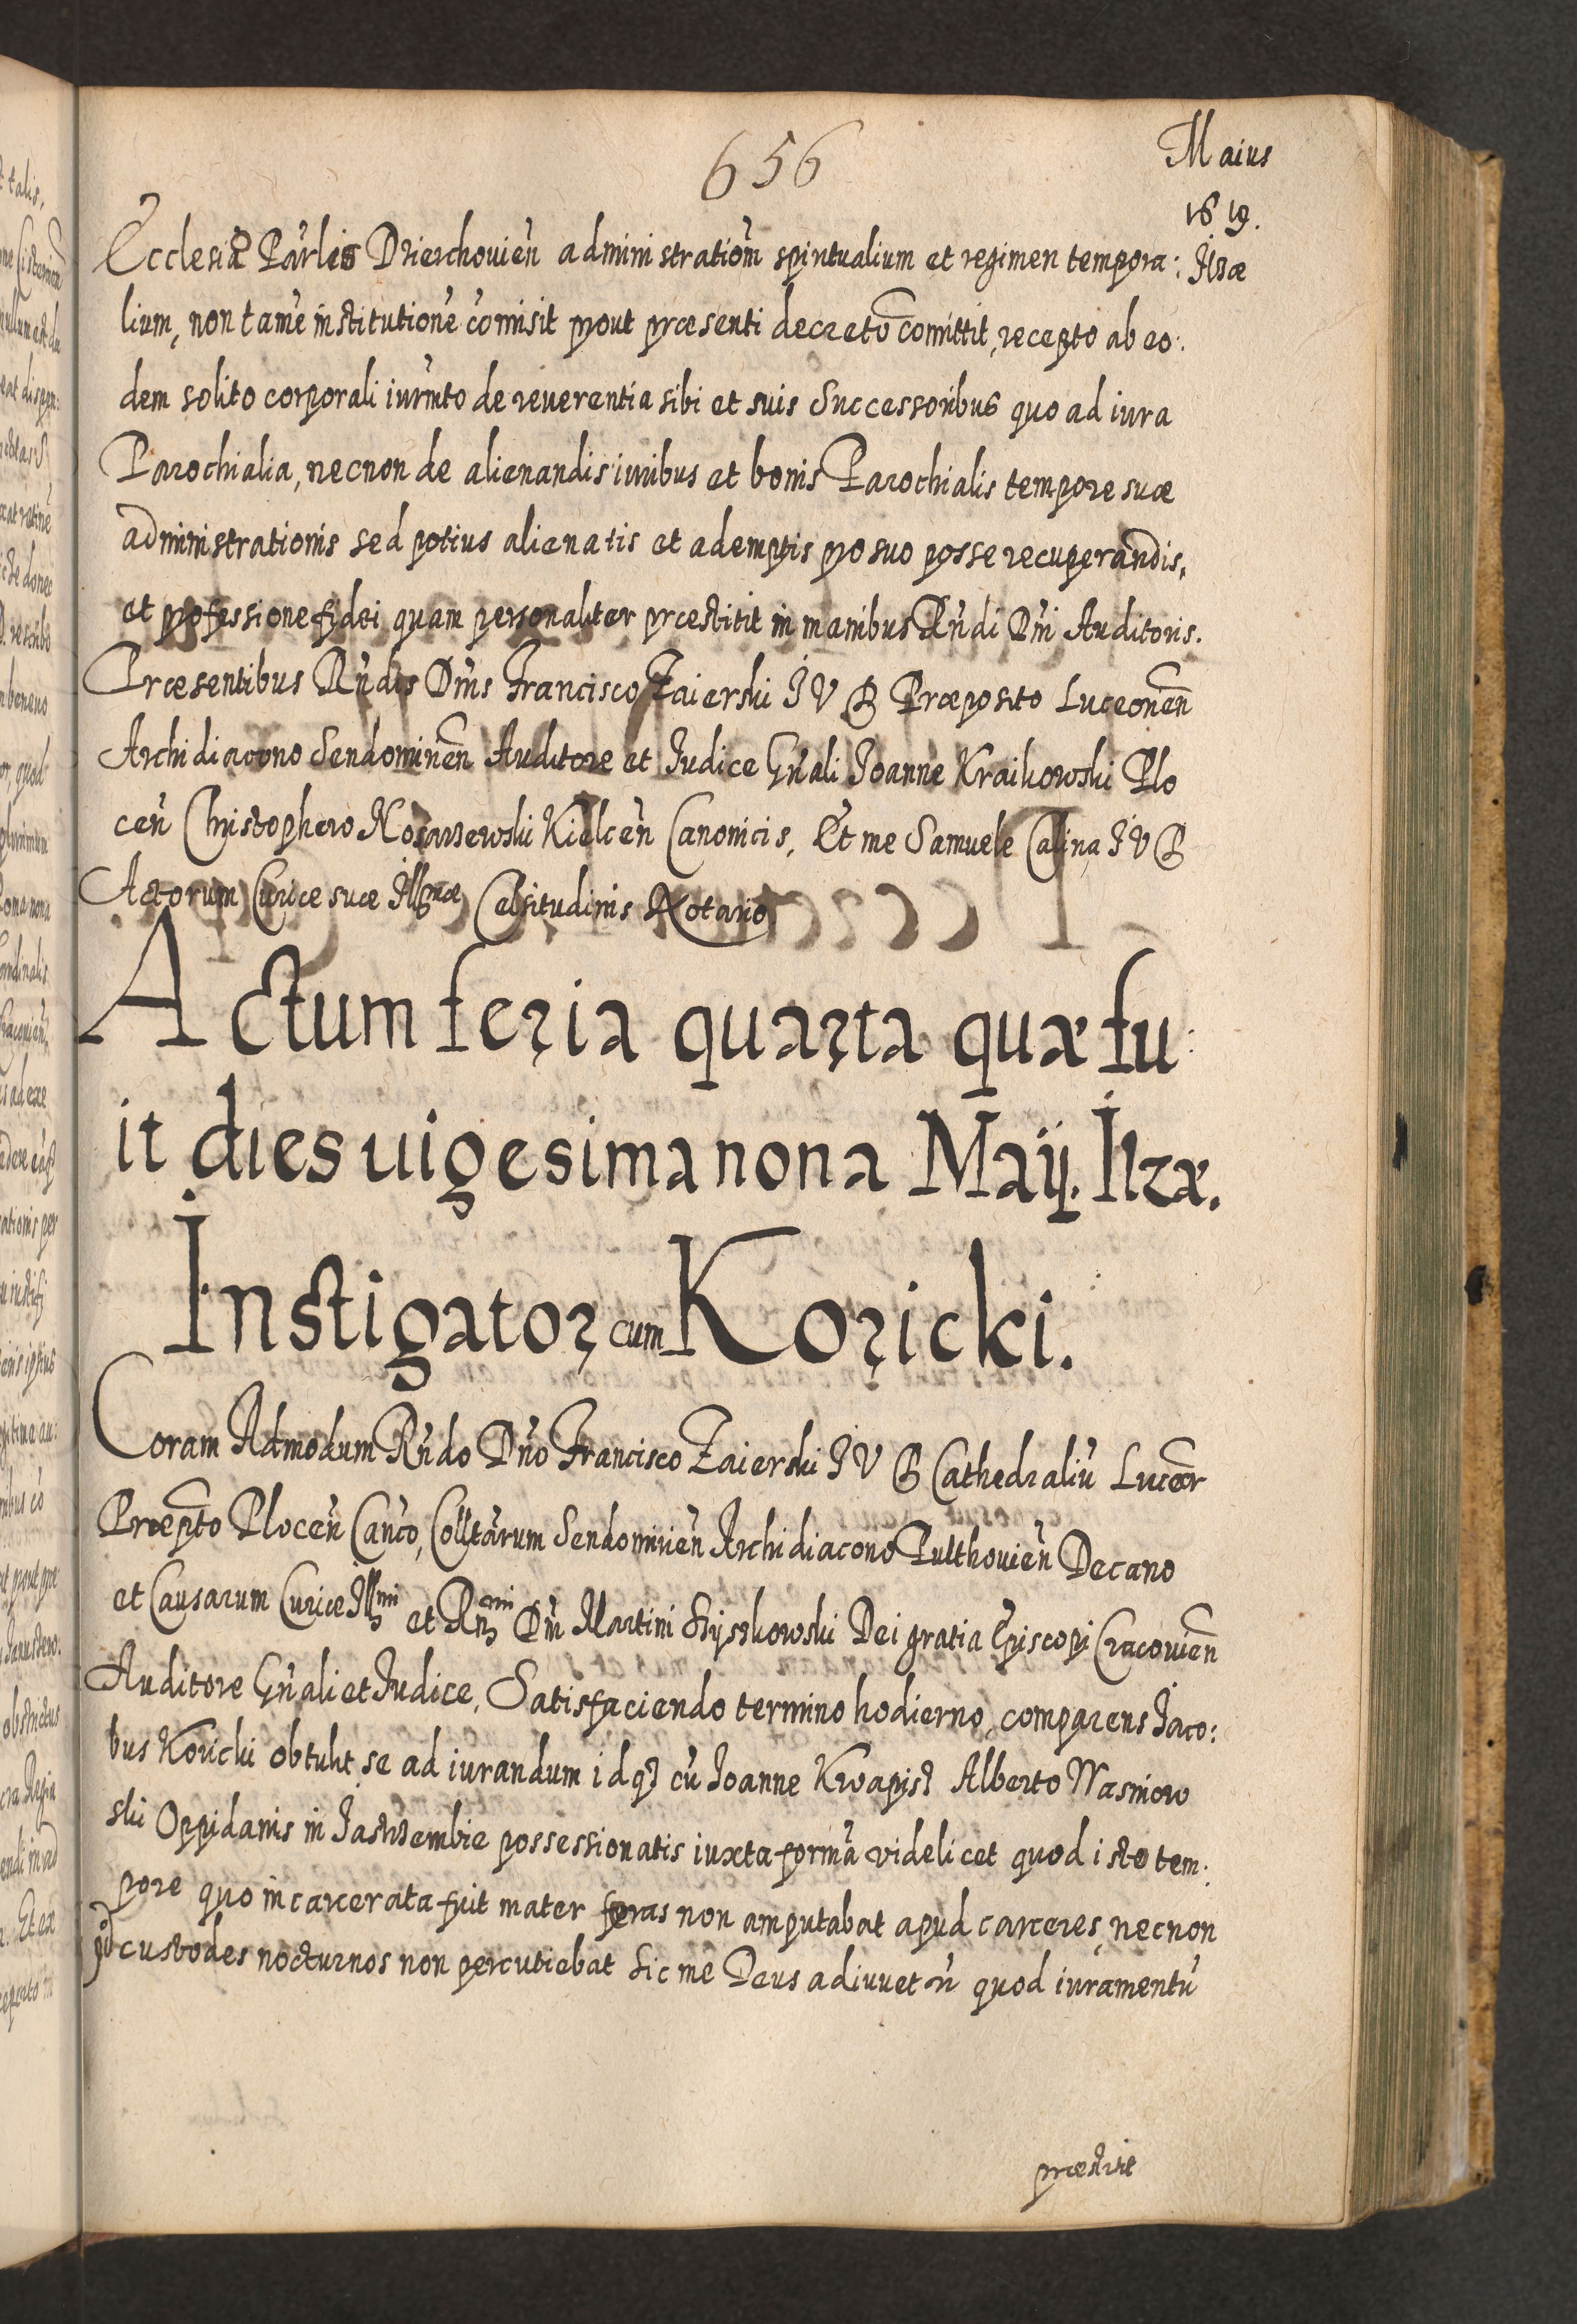 656
Maius
1619.
Ilzæ
Ecclesiæ Parlis Dzierzchouien̄ administratiom̄ spiritualium et regimen tempora:
lium, non tamē institutionē com̄isit prout præsenti decretō com̄ittit, recepto ab eo:
dem solito corporali iurm̄to de reuerentia sibi et suis Successoribus quo ad iura
Parochialia, necnon de alienandis iuribus et bonis Parochialis tempore suæ
administrationis sed potius alienatis et ademptis pro suo posse recuperandis,
et professione fidei quam personaliter præstitit in manibus Rn̄di Dn̄i Auditoris.
Præsentibus Rn̄dis Dn̄is Francisco Zaierski I V D Præposito Luceonen̄
Archidiacono Sendomirien̄ Auditore et Iudice Gn̄ali Ioanne Kraikowski Plo
cen̄ Christophero Nosarzewski Kielcen̄ Canonicis, Et me Samuele Calina I V D
Actorum Curiæ suæ Illmæ Celsitudinis Notario
Actum feria quarta quæ fu:
it dies uigesima nona Maij. Ilzæ.
Instigator cum Koricki.
Coram Admodum Rn̄do Dn̄o Francisco Zaierski I V D Cathedraliū Luceor
Præpto Plocen̄ Can̄co, Colltarum Sendomirien̄ Archidiacono Pulthouien̄ Decano
et Causarum Curiæ Illmi et Rn̄mi Dn̄i Martini Szyszkowski Dei gratia Episcopi Cracouien̄
Auditore Gn̄ali et Iudice, Satisfaciendo termino hodierno, comparens Iaco:
bus Koricki obtulit se ad iurandum idq₃ cū Ioanne Kwapis₃ Alberto Wasniow
ski Oppidanis in Jastrzembie possessionatis iuxta formā videlicet quod isto tem:
pore quo incarcerata fuit mater seras non amputabat apud carceres, necnon
qd custodes nocturnos non percutiebat Sic me Deus adiuuet ū quod iuramentū
præstitit